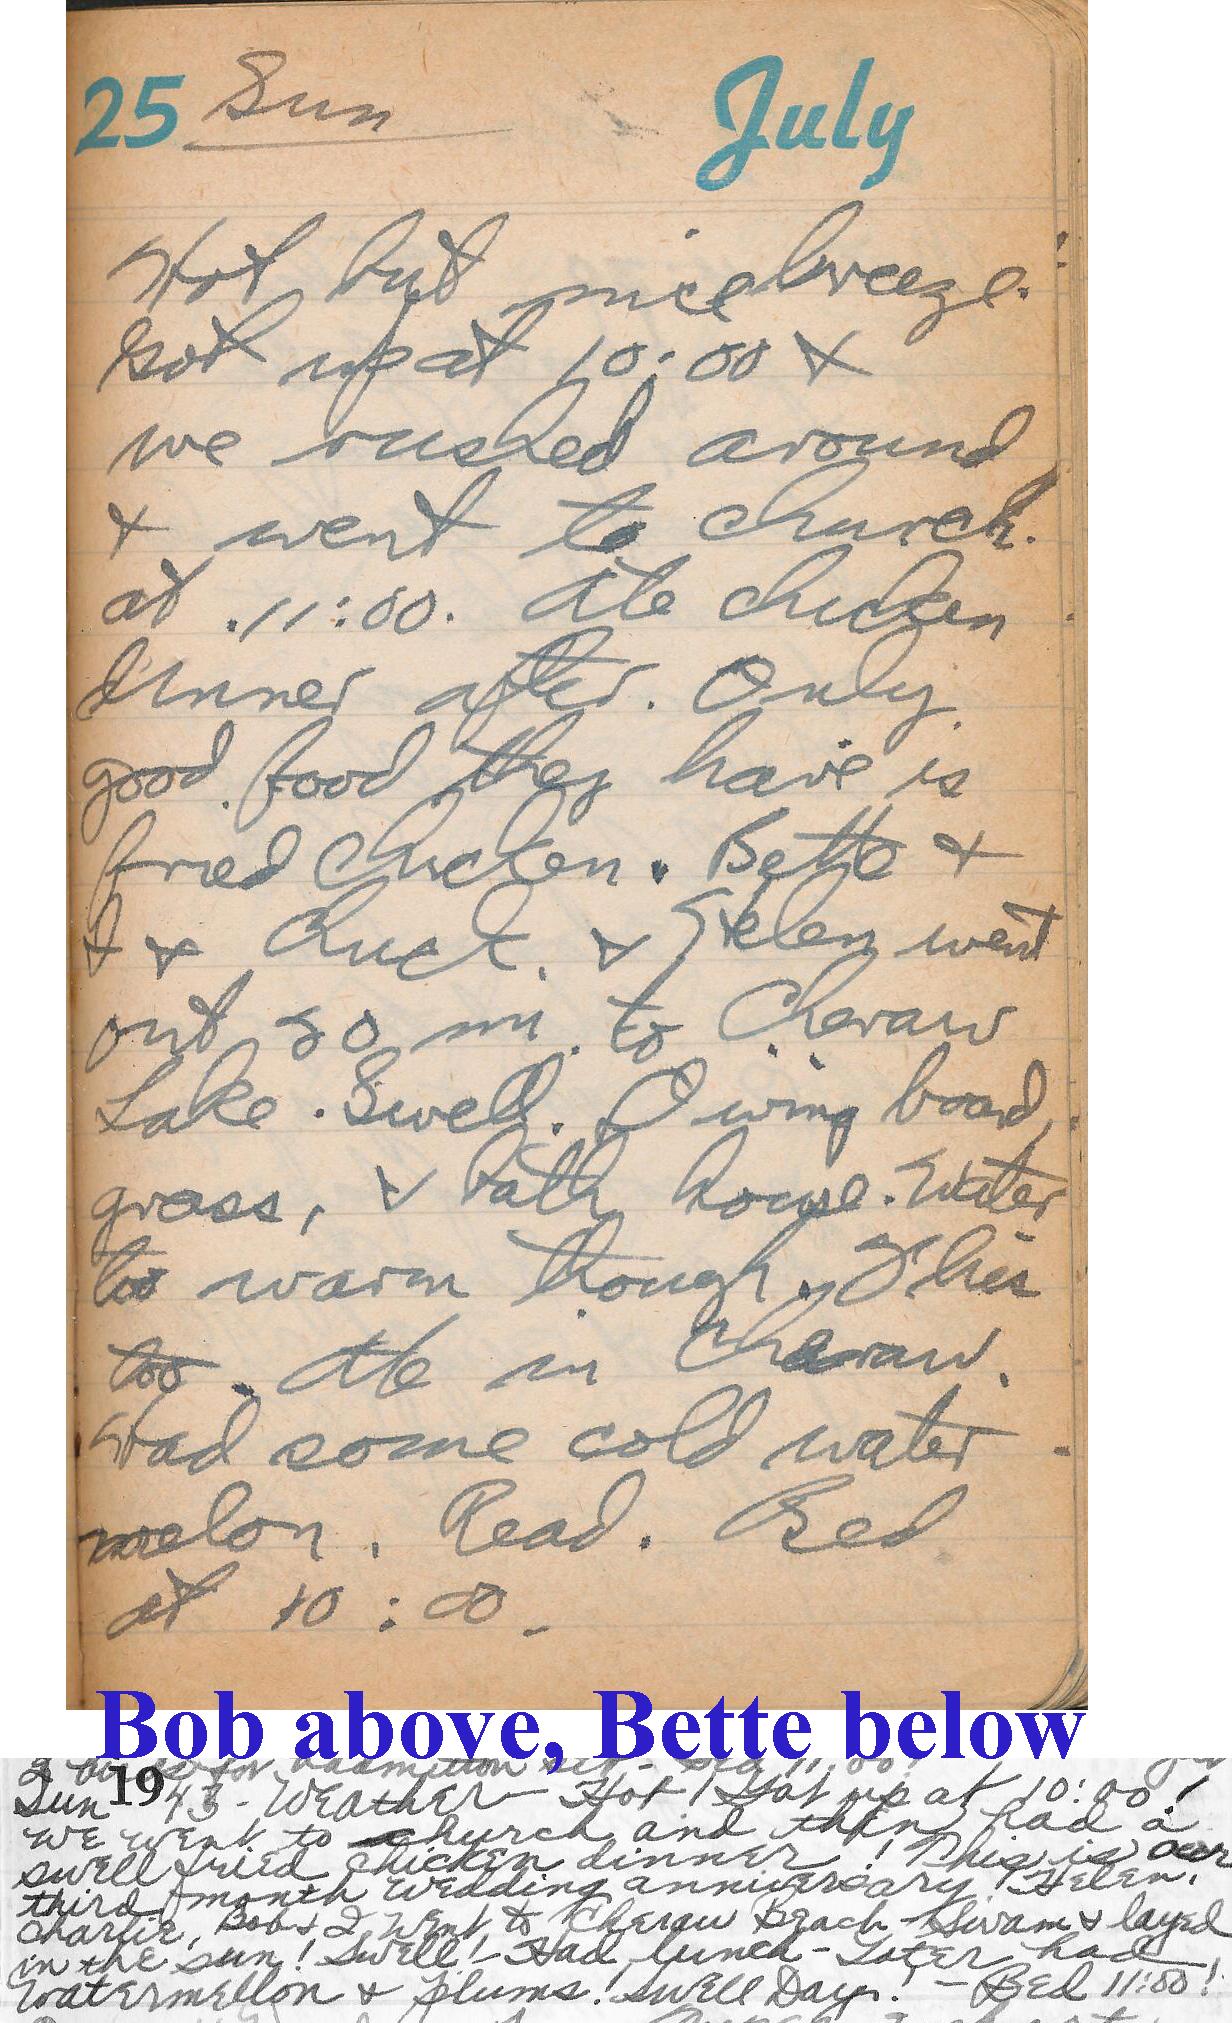 25 Sun July
Hot but nice breeze.
Got up at 10:00 &
we rushed around
& went to church.
at 11:00. Ate chicken
dinner after. Only
good food they have is
fried chicken. Bette &
I & Chuck & Helen went
out 30 mi. to Cheraw
Lake. Swell. Diving board,
grass, & bath house. Water
too warm though. Flies
too. Ate in Cheraw.
Had some cold water
melon. Read. Bed
at 10:00
Bob above, Bette below
for badminton set - Bed 11:00!
Sun 1943 - Weather - Hot! Got up at 10:00!
We went to church and then had a
swell fried chicken dinner! This is our
third month wedding anniversary! Helen,
Charlie, Bob & I went to Cheraw Beach - Swam & layed
in the sun! Swell! - Had lunch - Later had
watermellon & plums! Swell Day! - Bed 11:00!